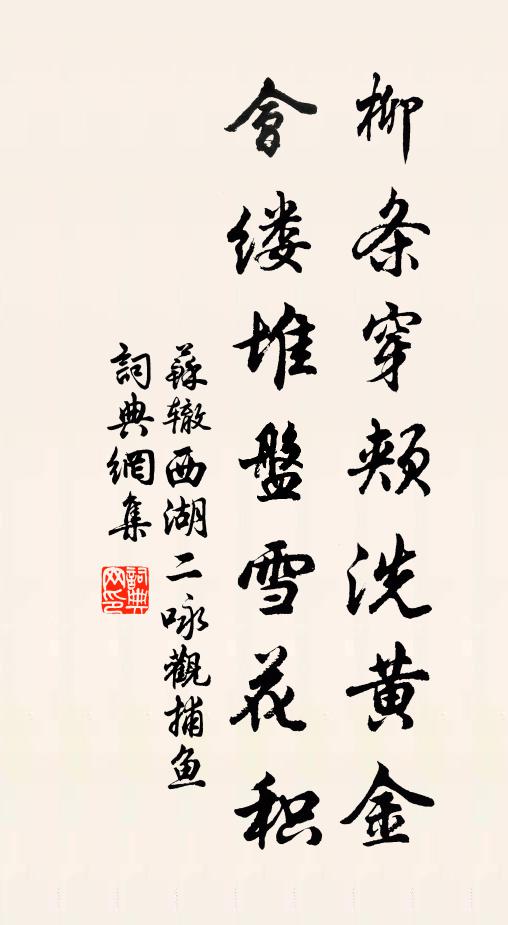 柳条穿颊洗黄金
会缕堆盤雪花积
蘇辙西湖二咏觀捕鱼
詞典網集
詞典网印